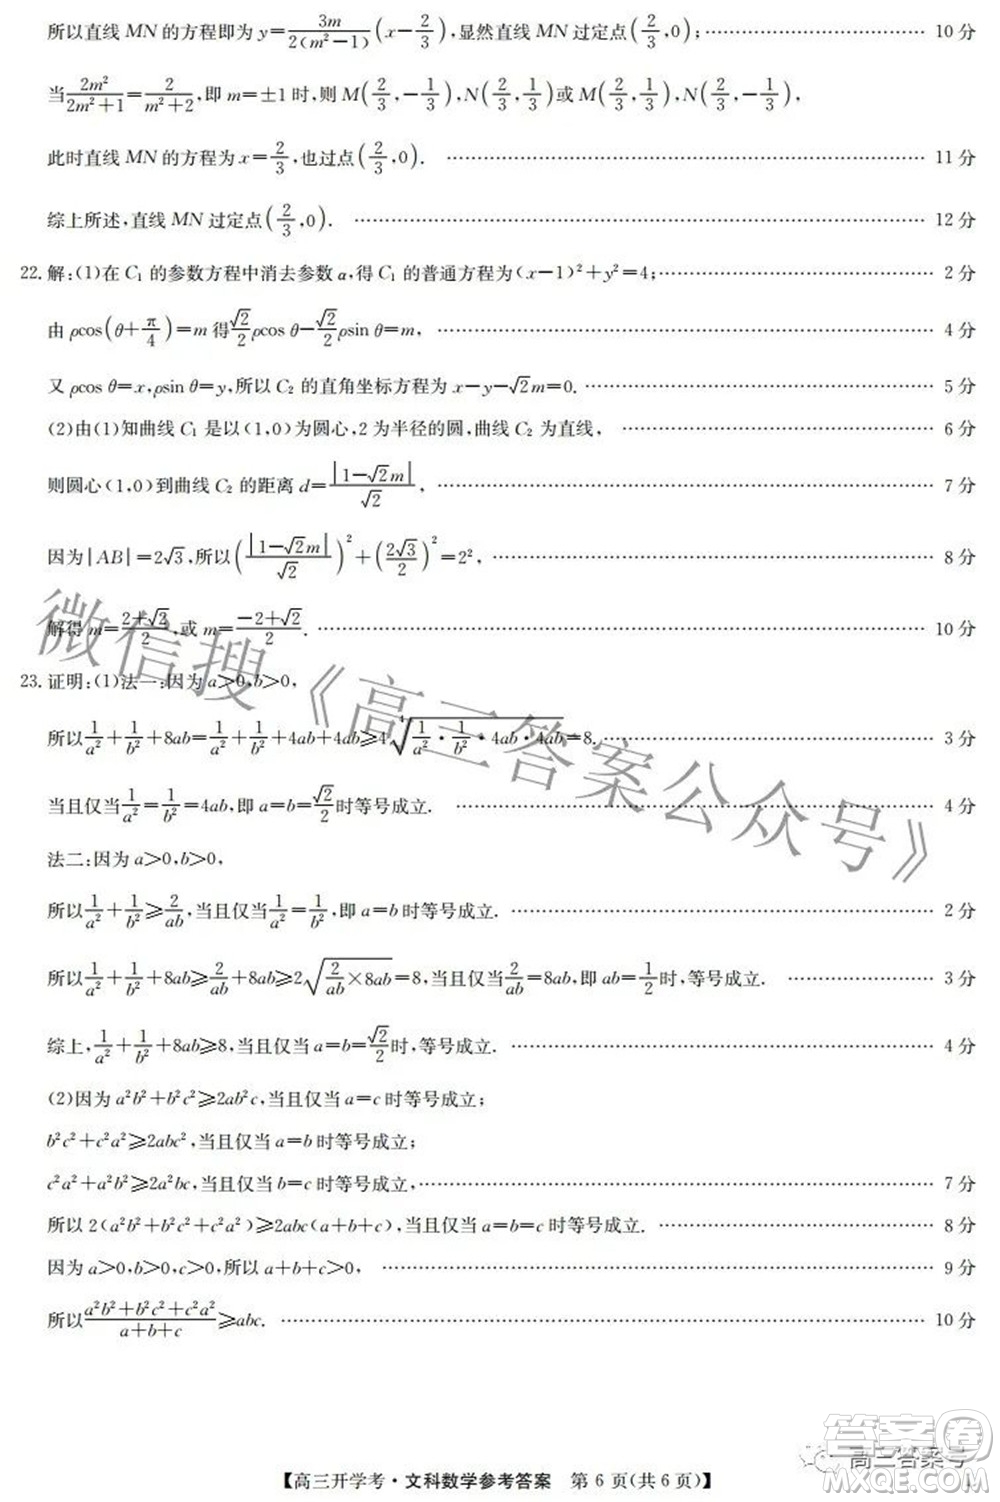 所以直线 MN 的方程即为 y=3m/2(m²−1)(x−2/3),显然直线 MN 过定点(2/3,0);………… 10 分
当2m²/2m²+1=2/m²+2,即 m=±1 时,则 M(2/3,−1/3),N(2/3,1/3)或 M(2/3,1/3),N(2/3,−1/3),
此时直线 MN 的方程为 x=2/3,也过点(2/3,0). ………… 11 分
综上所述,直线 MN 过定点(2/3,0). ………… 12 分
22. 解:(1)在 C₁ 的参数方程中消去参数 α,得 C₁ 的普通方程为(x−1)²+y²=4;………… 2 分
由 ρcos(θ+π/4)=m 得√2/2ρcos θ−√2/2ρsin θ=m, ………… 4 分
又 ρcos θ=x,ρsin θ=y,所以 C₂ 的直角坐标方程为 x−y−√2m=0. ………… 5 分
(2)由(1)知曲线 C₁ 是以(1,0)为圆心,2 为半径的圆,曲线 C₂ 为直线, ………… 6 分
则圆心(1,0)到曲线 C₂ 的距离 d=|1−√2m|/√2, ………… 7 分
因为|AB|=2√3,所以(|1−√2m|/√2)²+(2√3/2)²=2², ………… 8 分
解得 m=2+√2/2,或 m=−2+√2/2. ………… 10 分
23. 证明:(1)法一:因为 a>0,b>0,
所以1/a²+1/b²+8ab=1/a²+1/b²+4ab+4ab⩾4⁴√(1/a²·1/b²·4ab·4ab)=8, ………… 3 分
当且仅当1/a²=1/b²=4ab,即 a=b=√2/2时等号成立. ………… 4 分
法二:因为 a>0,b>0,
所以1/a²+1/b²⩾2/ab,当且仅当1/a²=1/b²,即 a=b 时等号成立. ………… 2 分
所以1/a²+1/b²+8ab⩾2/ab+8ab⩾2√(2/ab×8ab)=8,当且仅当2/ab=8ab,即 ab=1/2时,等号成立. ………… 3 分
综上,1/a²+1/b²+8ab⩾8,当且仅当 a=b=√2/2时,等号成立. ………… 4 分
(2)因为 a²b²+b²c²⩾2ab²c,当且仅当 a=c 时等号成立;
b²c²+c²a²⩾2abc²,当且仅当 a=b 时等号成立;
c²a²+a²b²⩾2a²bc,当且仅当 b=c 时等号成立, ………… 7 分
所以 2(a²b²+b²c²+c²a²)⩾2abc(a+b+c),当且仅当 a=b=c 时等号成立. ………… 8 分
因为 a>0,b>0,c>0,所以 a+b+c>0, ………… 9 分
所以a²b²+b²c²+c²a²/a+b+c⩾abc. ………… 10 分
微信搜《高三答案公众号》
答案圈
高三答案号
【高三开学考·文科数学参考答案 第 6 页(共 6 页)】